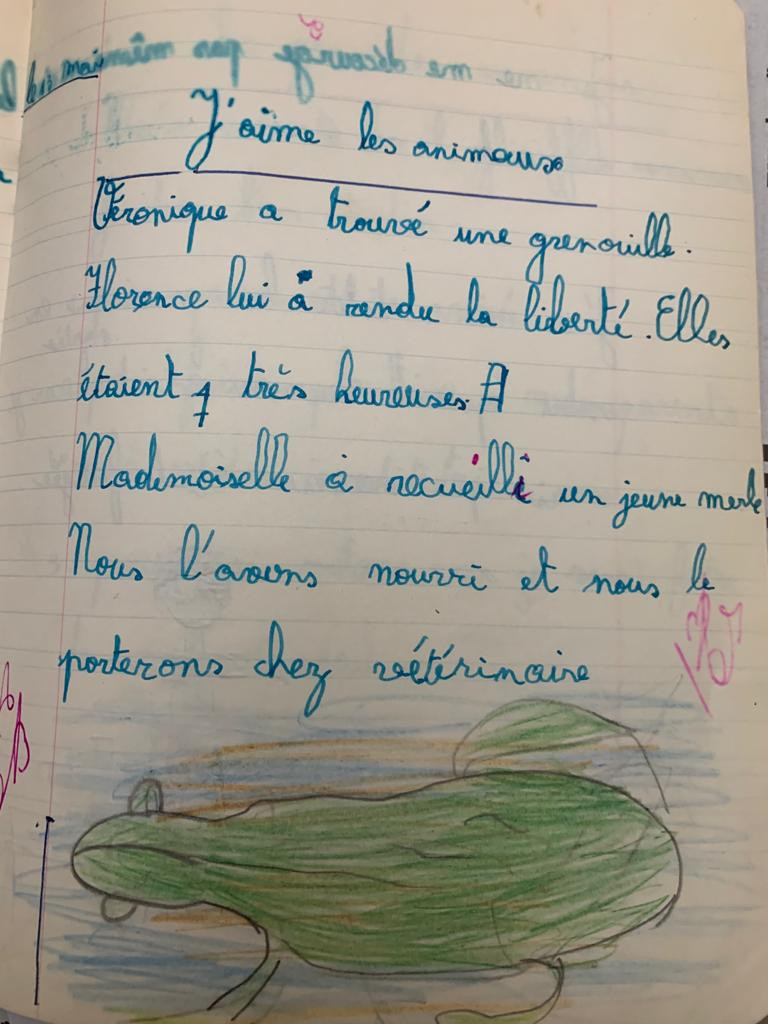 J'aime les animaux
Véronique a trouvé une grenouille.
Florence lui à rendu la liberté. Elles
étaient très heureuses.
Mademoiselle à recueilli un jeune merle
Nous l'avons nourri et nous le
porterons chez vétérimaire